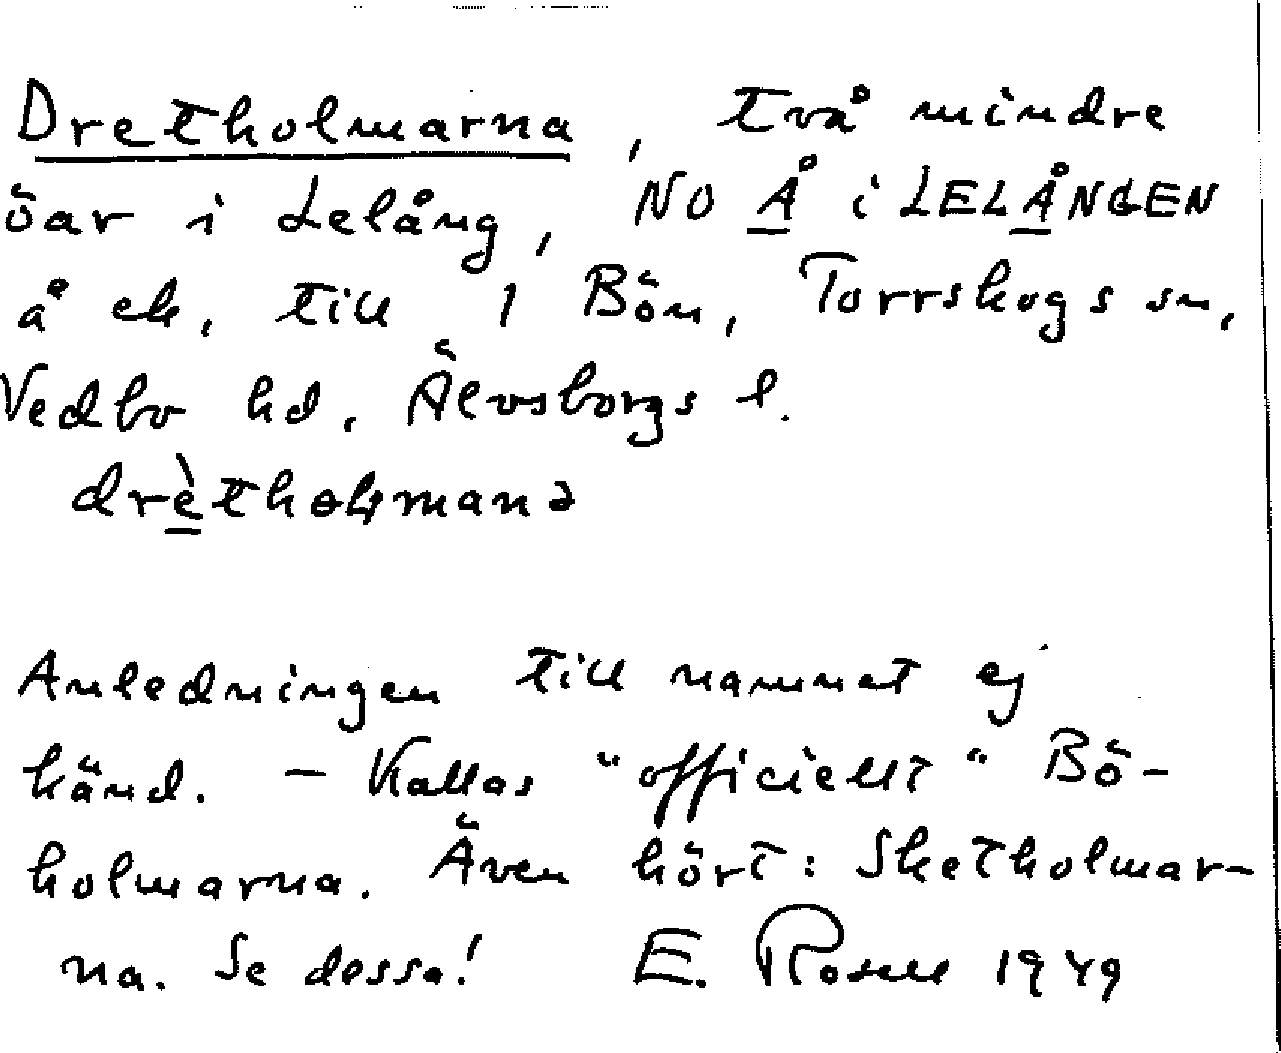 Dretholmarna, två mindre
öar i Lelång, NO Å i LELÅNGEN
å ek. till 1 Bön, Torrskogs sn,
Vedbo hd, Älvsborgs l.
drèthoɫmanə
Anledningen till namnet ej
känd. – Kallas "officiellt" Bö-
holmarna. Även hört: Sketholmar-
na. Se dessa! E. Rosell 1949